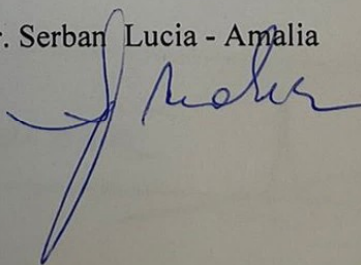 r. Serban Lucia - Amalia